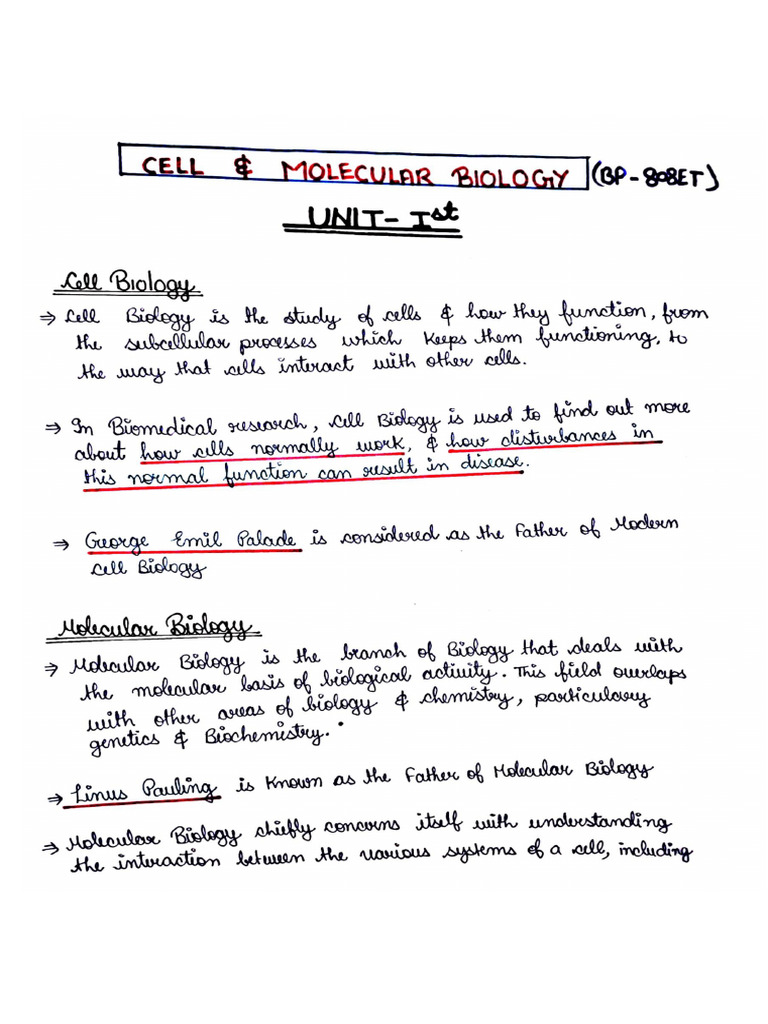 CELL & MOLECULAR BIOLOGY (BP-808ET)
UNIT-Ist
Cell Biology
⇒ Cell Biology is the study of cells & how they function, from
the subcellular processes which keeps them functioning, to
the way that cells interact with other cells.
⇒ In Biomedical research, Cell Biology is used to find out more
about how cells normally work, & how disturbances in
this normal function can result in disease.
⇒ George Emil Palade is considered as the Father of Modern
Cell Biology
Molecular Biology
⇒ Molecular Biology is the branch of Biology that deals with
the molecular basis of biological activity. This field overlaps
with other areas of biology & chemistry, particulary
genetics & Biochemistry.
⇒ Linus Pauling is known as the Father of Molecular Biology
⇒ Molecular Biology chiefly concerns itself with understanding
the interaction between the various systems of a cell, including